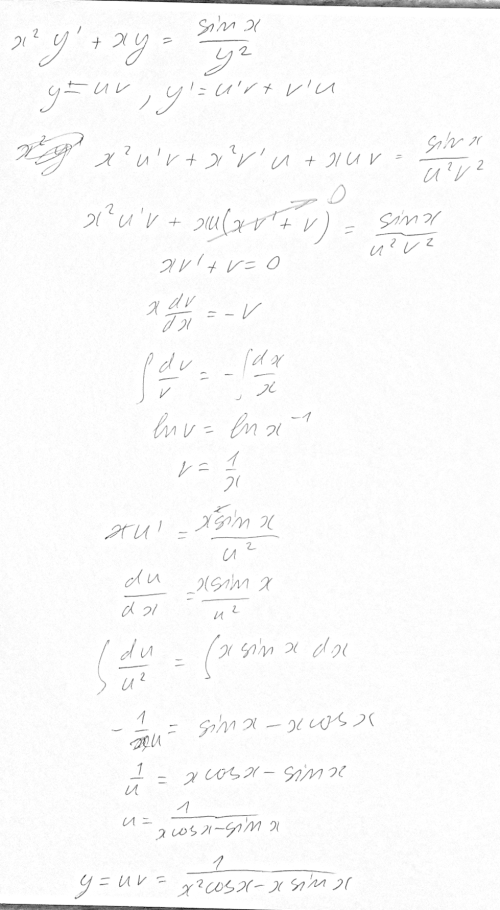 x² y' + xy = sin x / y²
y = uv , y' = u'v + v'u
x² u'v + x² v'u + xuv = sin x / u² v²
x² u'v + xu(xv' + v) = sin x / u² v²
0
xv' + v = 0
x dv/dx = -v
∫ dv/v = -∫ dx/x
ln v = ln x⁻¹
v = 1/x
xu' = x² sin x / u²
du/dx = x sin x / u²
∫ du/u² = ∫ x sin x dx
-1/u = sin x - x cos x
1/u = x cos x - sin x
u = 1 / x cos x - sin x
y = uv = 1 / x² cos x - x sin x